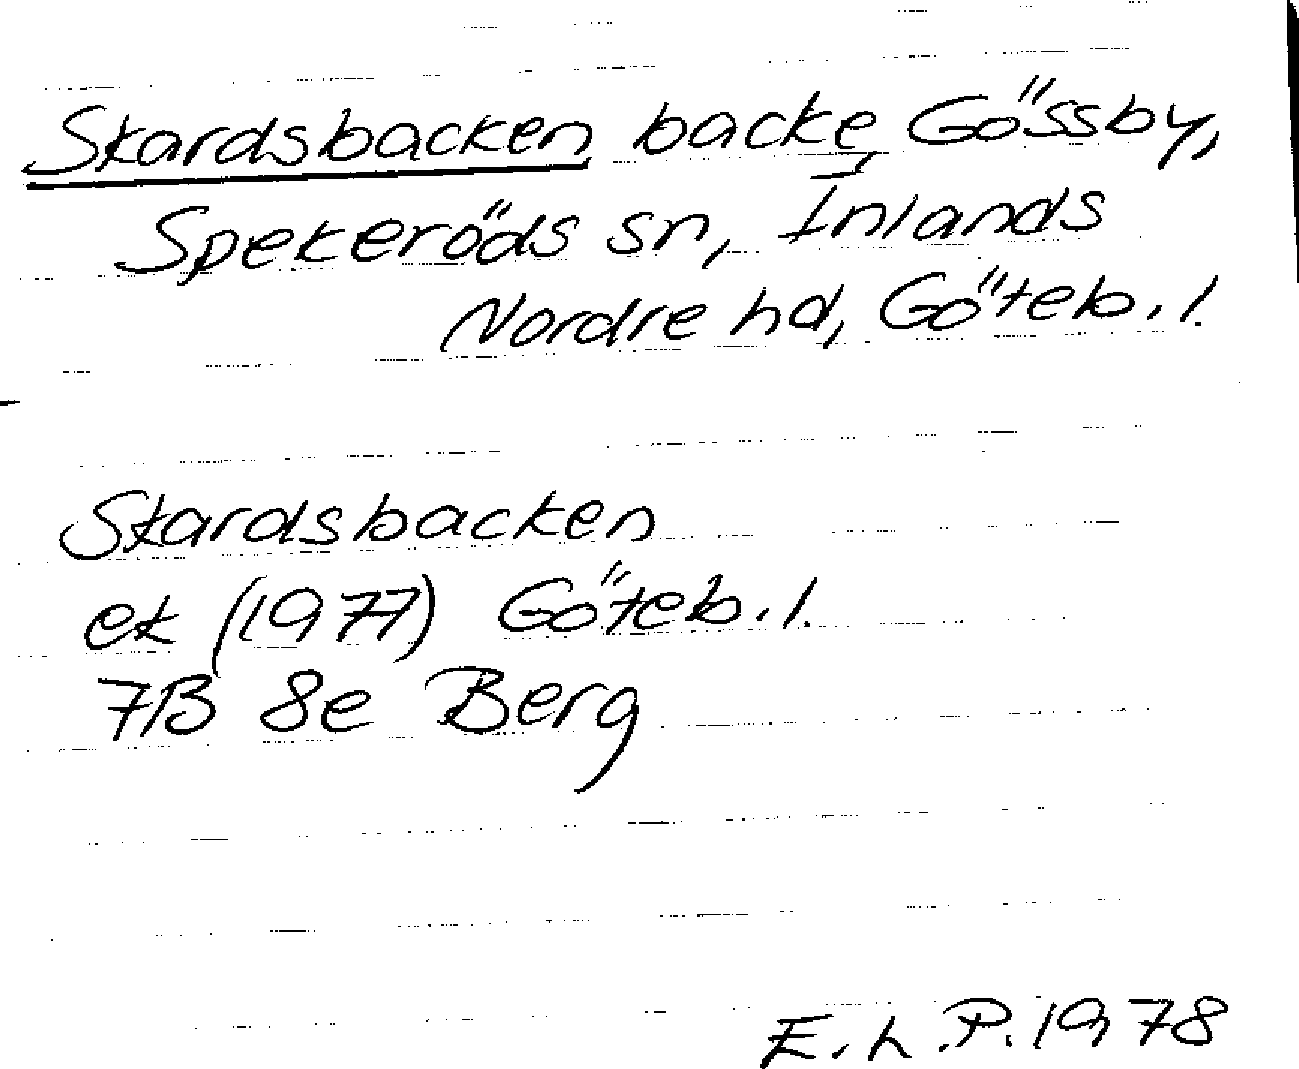 Skardsbacken backe, Gössby,
Spekeröds sn, Inlands
Nordre hd, Göteb. l.
Skardsbacken
ek (1977) Göteb. l.
7B 8e Berg
E.L.P. 1978